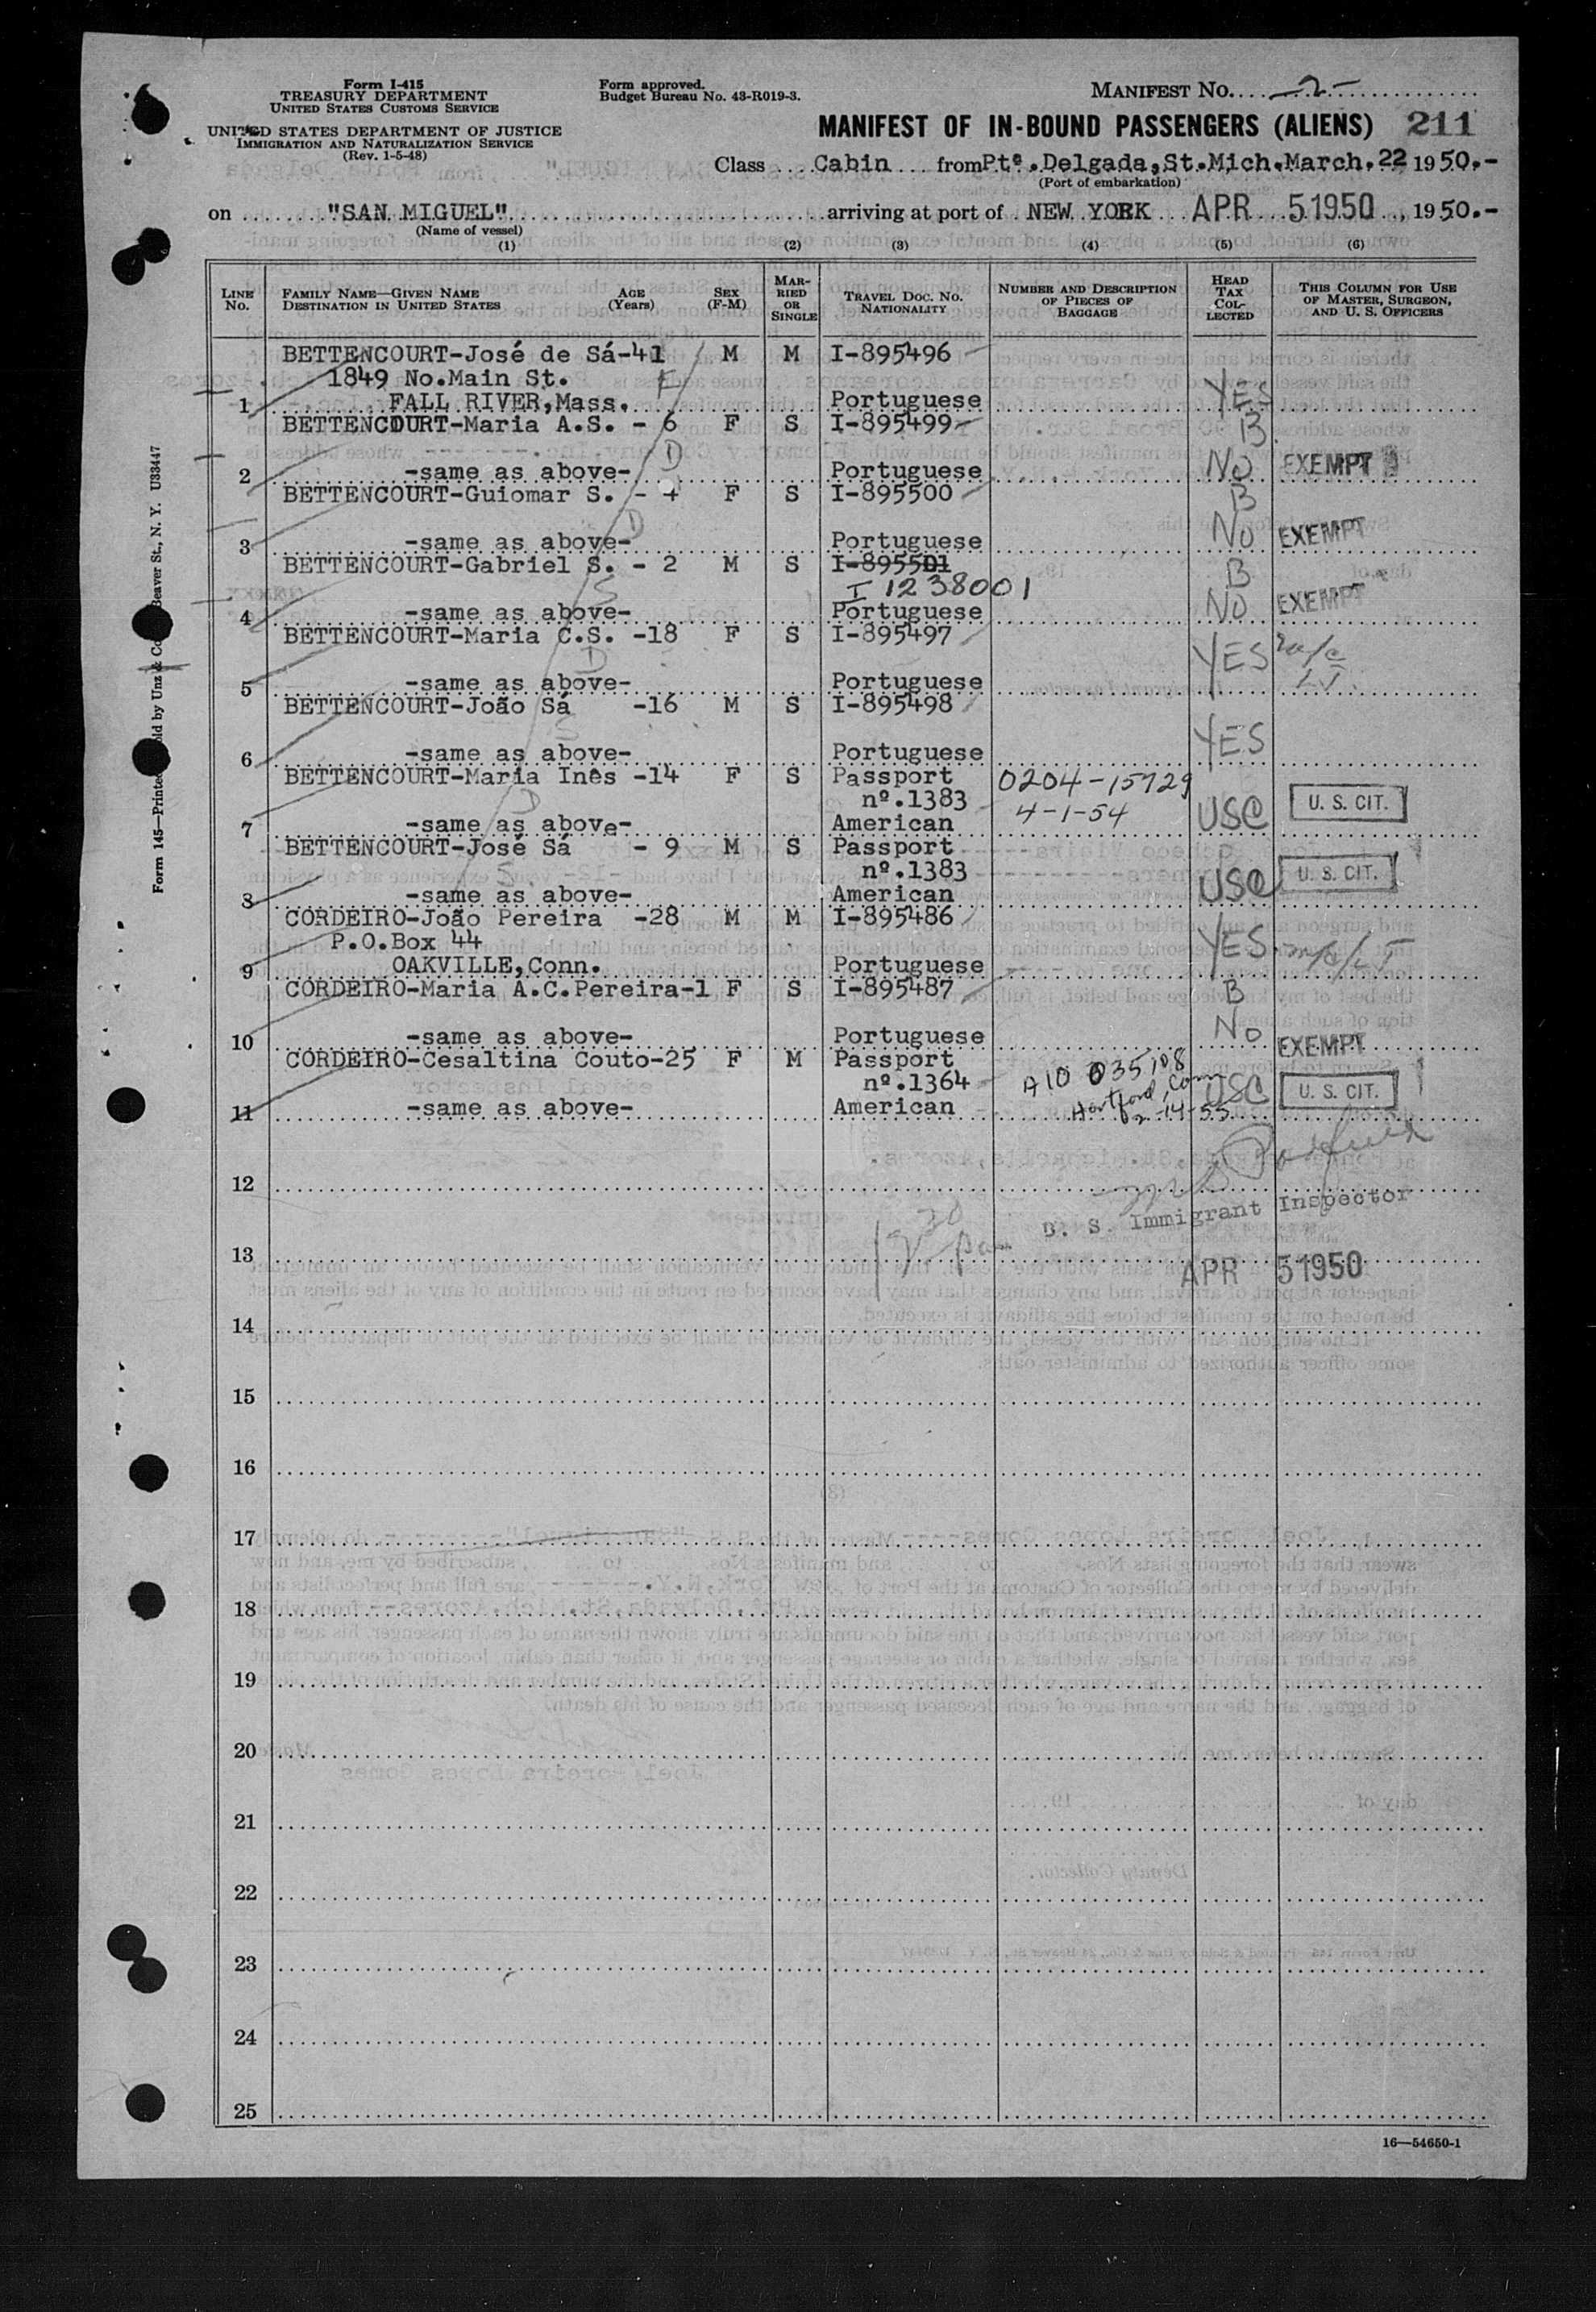 Form I-415
TREASURY DEPARTMENT
UNITED STATES CUSTOMS SERVICE
UNITED STATES DEPARTMENT OF JUSTICE
IMMIGRATION AND NATURALIZATION SERVICE
(Rev. 1-5-48)
Form approved.
Budget Bureau No. 43-R019-3.
MANIFEST No. -2-
MANIFEST OF IN-BOUND PASSENGERS (ALIENS) 211
Class Cabin from Ptª.Delgada,St.Mich.March.22 1950.-
(Port of embarkation)
on "SAN MIGUEL" arriving at port of NEW YORK APR 5 1950, 1950.-
(Name of vessel)
(1) (2) (3) (4) (5) (6)
LINE No. FAMILY NAME—GIVEN NAME DESTINATION IN UNITED STATES AGE (Years) SEX (F-M) MARRIED OR SINGLE TRAVEL DOC. NO. NATIONALITY NUMBER AND DESCRIPTION OF PIECES OF BAGGAGE HEAD TAX COLLECTED THIS COLUMN FOR USE OF MASTER, SURGEON, AND U. S. OFFICERS
BETTENCOURT-José de Sá-41 M M I-895496
1849 No.Main St. F
1 FALL RIVER,Mass. Portuguese YES
BETTENCOURT-Maria A.S. - 6 F S I-895499 B
D
2 -same as above- Portuguese No EXEMPT
BETTENCOURT-Guiomar S. - 4 F S I-895500 B
D
3 -same as above- Portuguese No EXEMPT
BETTENCOURT-Gabriel S. - 2 M S I-895501 B
S I 1238001
4 -same as above- Portuguese No EXEMPT
BETTENCOURT-Maria C.S. -18 F S I-895497
D YES
5 -same as above- Portuguese
BETTENCOURT-João Sá -16 M S I-895498
S YES
6 -same as above- Portuguese
BETTENCOURT-Maria Inês -14 F S Passport 0204-15729
D nº.1383 4-1-54 U. S. CIT.
7 -same as above- American USC
BETTENCOURT-José Sá - 9 M S Passport
S nº.1383 U. S. CIT.
8 -same as above- American USC
CORDEIRO-João Pereira -28 M M I-895486
P.O.Box 44 YES
9 OAKVILLE,Conn. Portuguese
CORDEIRO-Maria A.C.Pereira-1 F S I-895487 B
10 -same as above- Portuguese No EXEMPT
CORDEIRO-Cesaltina Couto-25 F M Passport
nº.1364 A10 035108 U. S. CIT.
11 -same as above- American Hartford, Conn USC
2-14-55
12
U. S. Immigrant Inspector
13
APR 5 1950
14
15
16
17
18
19
20
21
22
23
24
25
16—54650-1